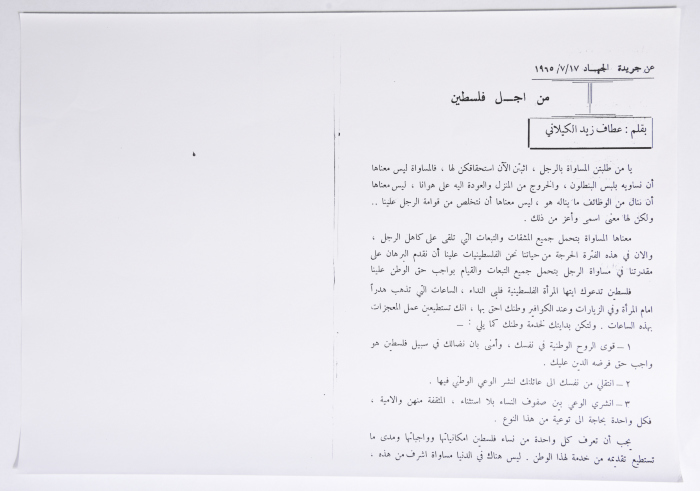 عن جريدة الجهاد ١٩٦٥/٧/١٧
من اجل فلسطين
بقلم : عطاف زيد الكيلاني
يا من طلبتن المساواة بالرجل ، اثبتن الآن استحقاقكن لها ، فالمساواة ليس معناها
أن نساويه بلبس البنطلون ، والخروج من المنزل والعودة اليه على هوانا ، ليس معناها
أن ننال من الوظائف ما يناله هو ، ليس معناها أن نتخلص من قوامة الرجل علينا ..
ولكن لها معنى اسمى وأعز من ذلك .
معناها المساواة بتحمل جميع المشقات والتبعات التي تلقى على كاهل الرجل ،
والان في هذه الفترة الحرجة من حياتنا نحن الفلسطينيات علينا أن نقدم البرهان على
مقدرتنا في مساواة الرجل بتحمل جميع التبعات والقيام بواجب حق الوطن علينا
فلسطين تدعوك ايتها المرأة الفلسطينية فلبي النداء ، الساعات التي تذهب هدراً
امام المرأة وفي الزيارات وعند الكوافير وطنك احق بها ، انك تستطيعين عمل المعجزات
بهذه الساعات . ولتكن بدايتك لخدمة وطنك كما يلي : ــ
١ ــ قوى الروح الوطنية في نفسك ، وأمني بان نضالك في سبيل فلسطين هو
واجب حق فرضه الدين عليك .
٢ ــ انتقلي من نفسك الى عائلتك لنشر الوعي الوطني فيها .
٣ ــ انشري الوعي بين صفوف النساء بلا استثناء ، المثقفة منهن والامية ،
فكل واحدة بحاجة الى توعية من هذا النوع .
يجب أن تعرف كل واحدة من نساء فلسطين امكانياتها وواجباتها ومدى ما
تستطيع تقديمه من خدمة لهذا الوطن . ليس هناك في الدنيا مساواة اشرف من هذه .